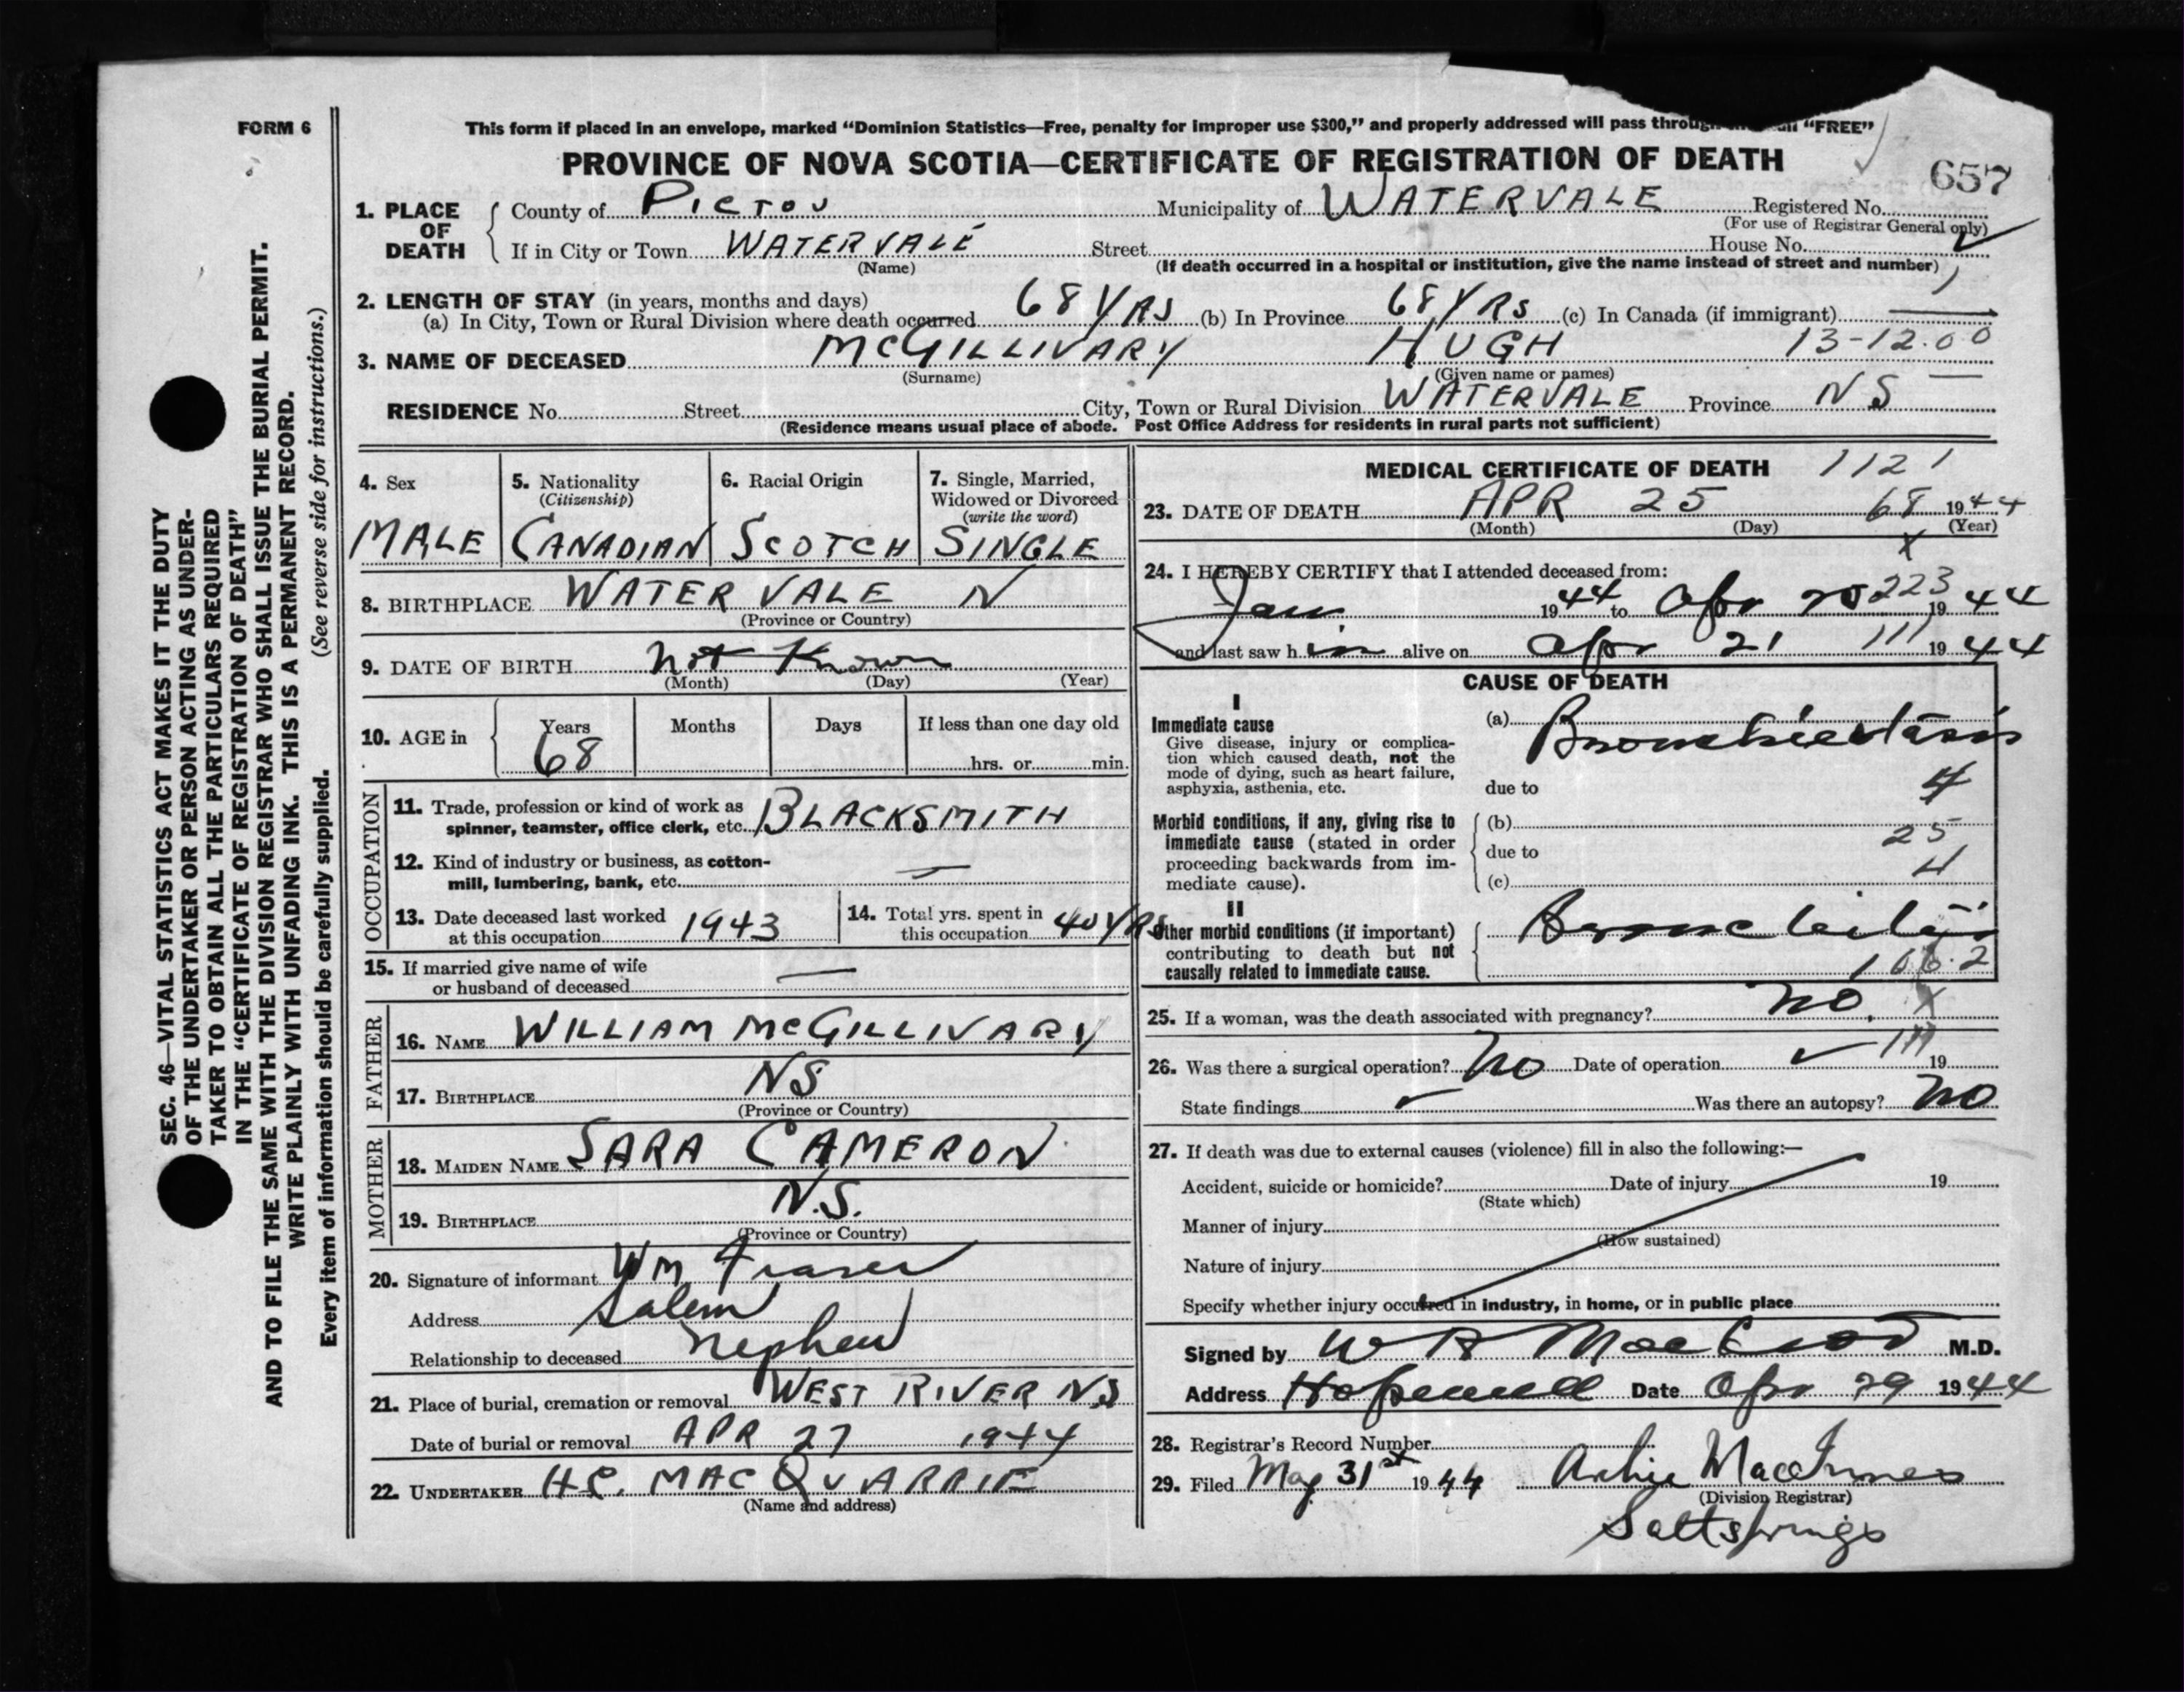 FORM 6
This form if placed in an envelope, marked "Dominion Statistics—Free, penalty for improper use $300," and properly addressed will pass through "FREE"
PROVINCE OF NOVA SCOTIA—CERTIFICATE OF REGISTRATION OF DEATH
657
1. PLACE OF DEATH
County of PICTOU Municipality of WATERVALE Registered No.
(For use of Registrar General only)
If in City or Town WATERVALE Street House No.
(Name) (If death occurred in a hospital or institution, give the name instead of street and number)
2. LENGTH OF STAY (in years, months and days)
(a) In City, Town or Rural Division where death occurred 68 YRS (b) In Province 68 YRS (c) In Canada (if immigrant) —
3. NAME OF DECEASED MCGILLIVARY HUGH 13-12.00
(Surname) (Given name or names)
RESIDENCE No. Street City, Town or Rural Division WATERVALE Province N S
(Residence means usual place of abode. Post Office Address for residents in rural parts not sufficient)
4. Sex
MALE
5. Nationality
(Citizenship)
CANADIAN
6. Racial Origin
SCOTCH
7. Single, Married, Widowed or Divorced
(write the word)
SINGLE
8. BIRTHPLACE WATER VALE N
(Province or Country)
9. DATE OF BIRTH Not Known
(Month) (Day) (Year)
10. AGE in Years Months Days If less than one day old
68 hrs. or min.
OCCUPATION
11. Trade, profession or kind of work as
spinner, teamster, office clerk, etc. BLACKSMITH
12. Kind of industry or business, as cotton-
mill, lumbering, bank, etc. —
13. Date deceased last worked
at this occupation 1943
14. Total yrs. spent in
this occupation 40 YRS
15. If married give name of wife
or husband of deceased —
FATHER
16. NAME WILLIAM MCGILLIVARY
17. BIRTHPLACE NS
(Province or Country)
MOTHER
18. MAIDEN NAME SARA CAMERON
19. BIRTHPLACE N.S.
(Province or Country)
20. Signature of informant Wm Fraser
Address Salem
Relationship to deceased Nephew
21. Place of burial, cremation or removal WEST RIVER N.S
Date of burial or removal APR 27 1944
22. UNDERTAKER H.C. MACQUARRIE
(Name and address)
MEDICAL CERTIFICATE OF DEATH 1121
23. DATE OF DEATH APR 25 68 1944
(Month) (Day) (Year)
X
24. I HEREBY CERTIFY that I attended deceased from:
Jan 1944 to Apr 25 223 1944
and last saw him alive on Apr 21 111 1944
CAUSE OF DEATH
I
Immediate cause
Give disease, injury or complica-
tion which caused death, not the
mode of dying, such as heart failure,
asphyxia, asthenia, etc.
(a) Bronchiectasis
due to 4
Morbid conditions, if any, giving rise to
immediate cause (stated in order
proceeding backwards from im-
mediate cause).
(b) 25
due to
(c) 4
II
Other morbid conditions (if important)
contributing to death but not
causally related to immediate cause.
Bronchitis
106.2
25. If a woman, was the death associated with pregnancy? No. X
26. Was there a surgical operation? No Date of operation 19
State findings Was there an autopsy? No
27. If death was due to external causes (violence) fill in also the following:—
Accident, suicide or homicide? Date of injury 19
(State which)
Manner of injury
(How sustained)
Nature of injury
Specify whether injury occurred in industry, in home, or in public place
Signed by W R MacLeod M.D.
Address Hopewell Date Apr 29 1944
28. Registrar's Record Number
29. Filed May 31st 1944 Archie MacInnes
(Division Registrar)
Saltsprings
SEC. 46—VITAL STATISTICS ACT MAKES IT THE DUTY
OF THE UNDERTAKER OR PERSON ACTING AS UNDER-
TAKER TO OBTAIN ALL THE PARTICULARS REQUIRED
IN THE "CERTIFICATE OF REGISTRATION OF DEATH"
AND TO FILE THE SAME WITH THE DIVISION REGISTRAR WHO SHALL ISSUE THE BURIAL PERMIT.
WRITE PLAINLY WITH UNFADING INK. THIS IS A PERMANENT RECORD.
Every item of information should be carefully supplied. (See reverse side for instructions.)